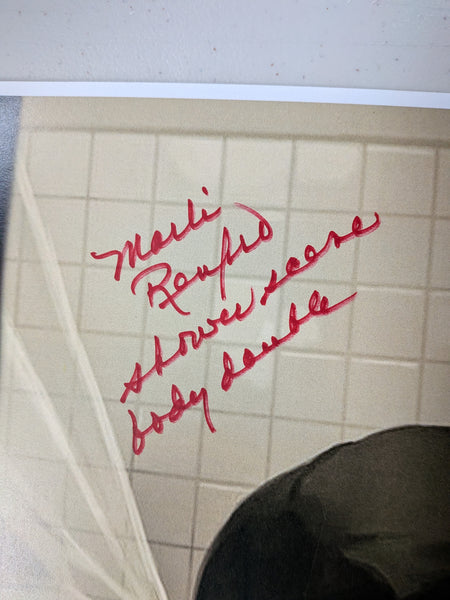 Marli
Renfro
shower scene
body double